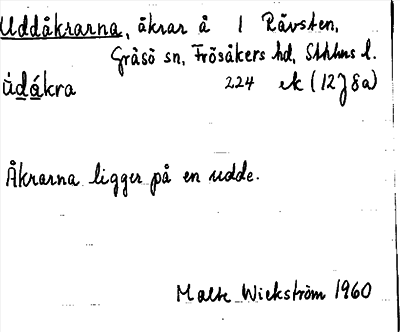 Uddåkrarna, åkrar å 1 Rävsten,
Gräsö sn, Frösåkers hd, Sthlms l.
ùdákra 224 ek (12J8a)
Åkrarna ligger på en udde.
Malte Wickström 1960